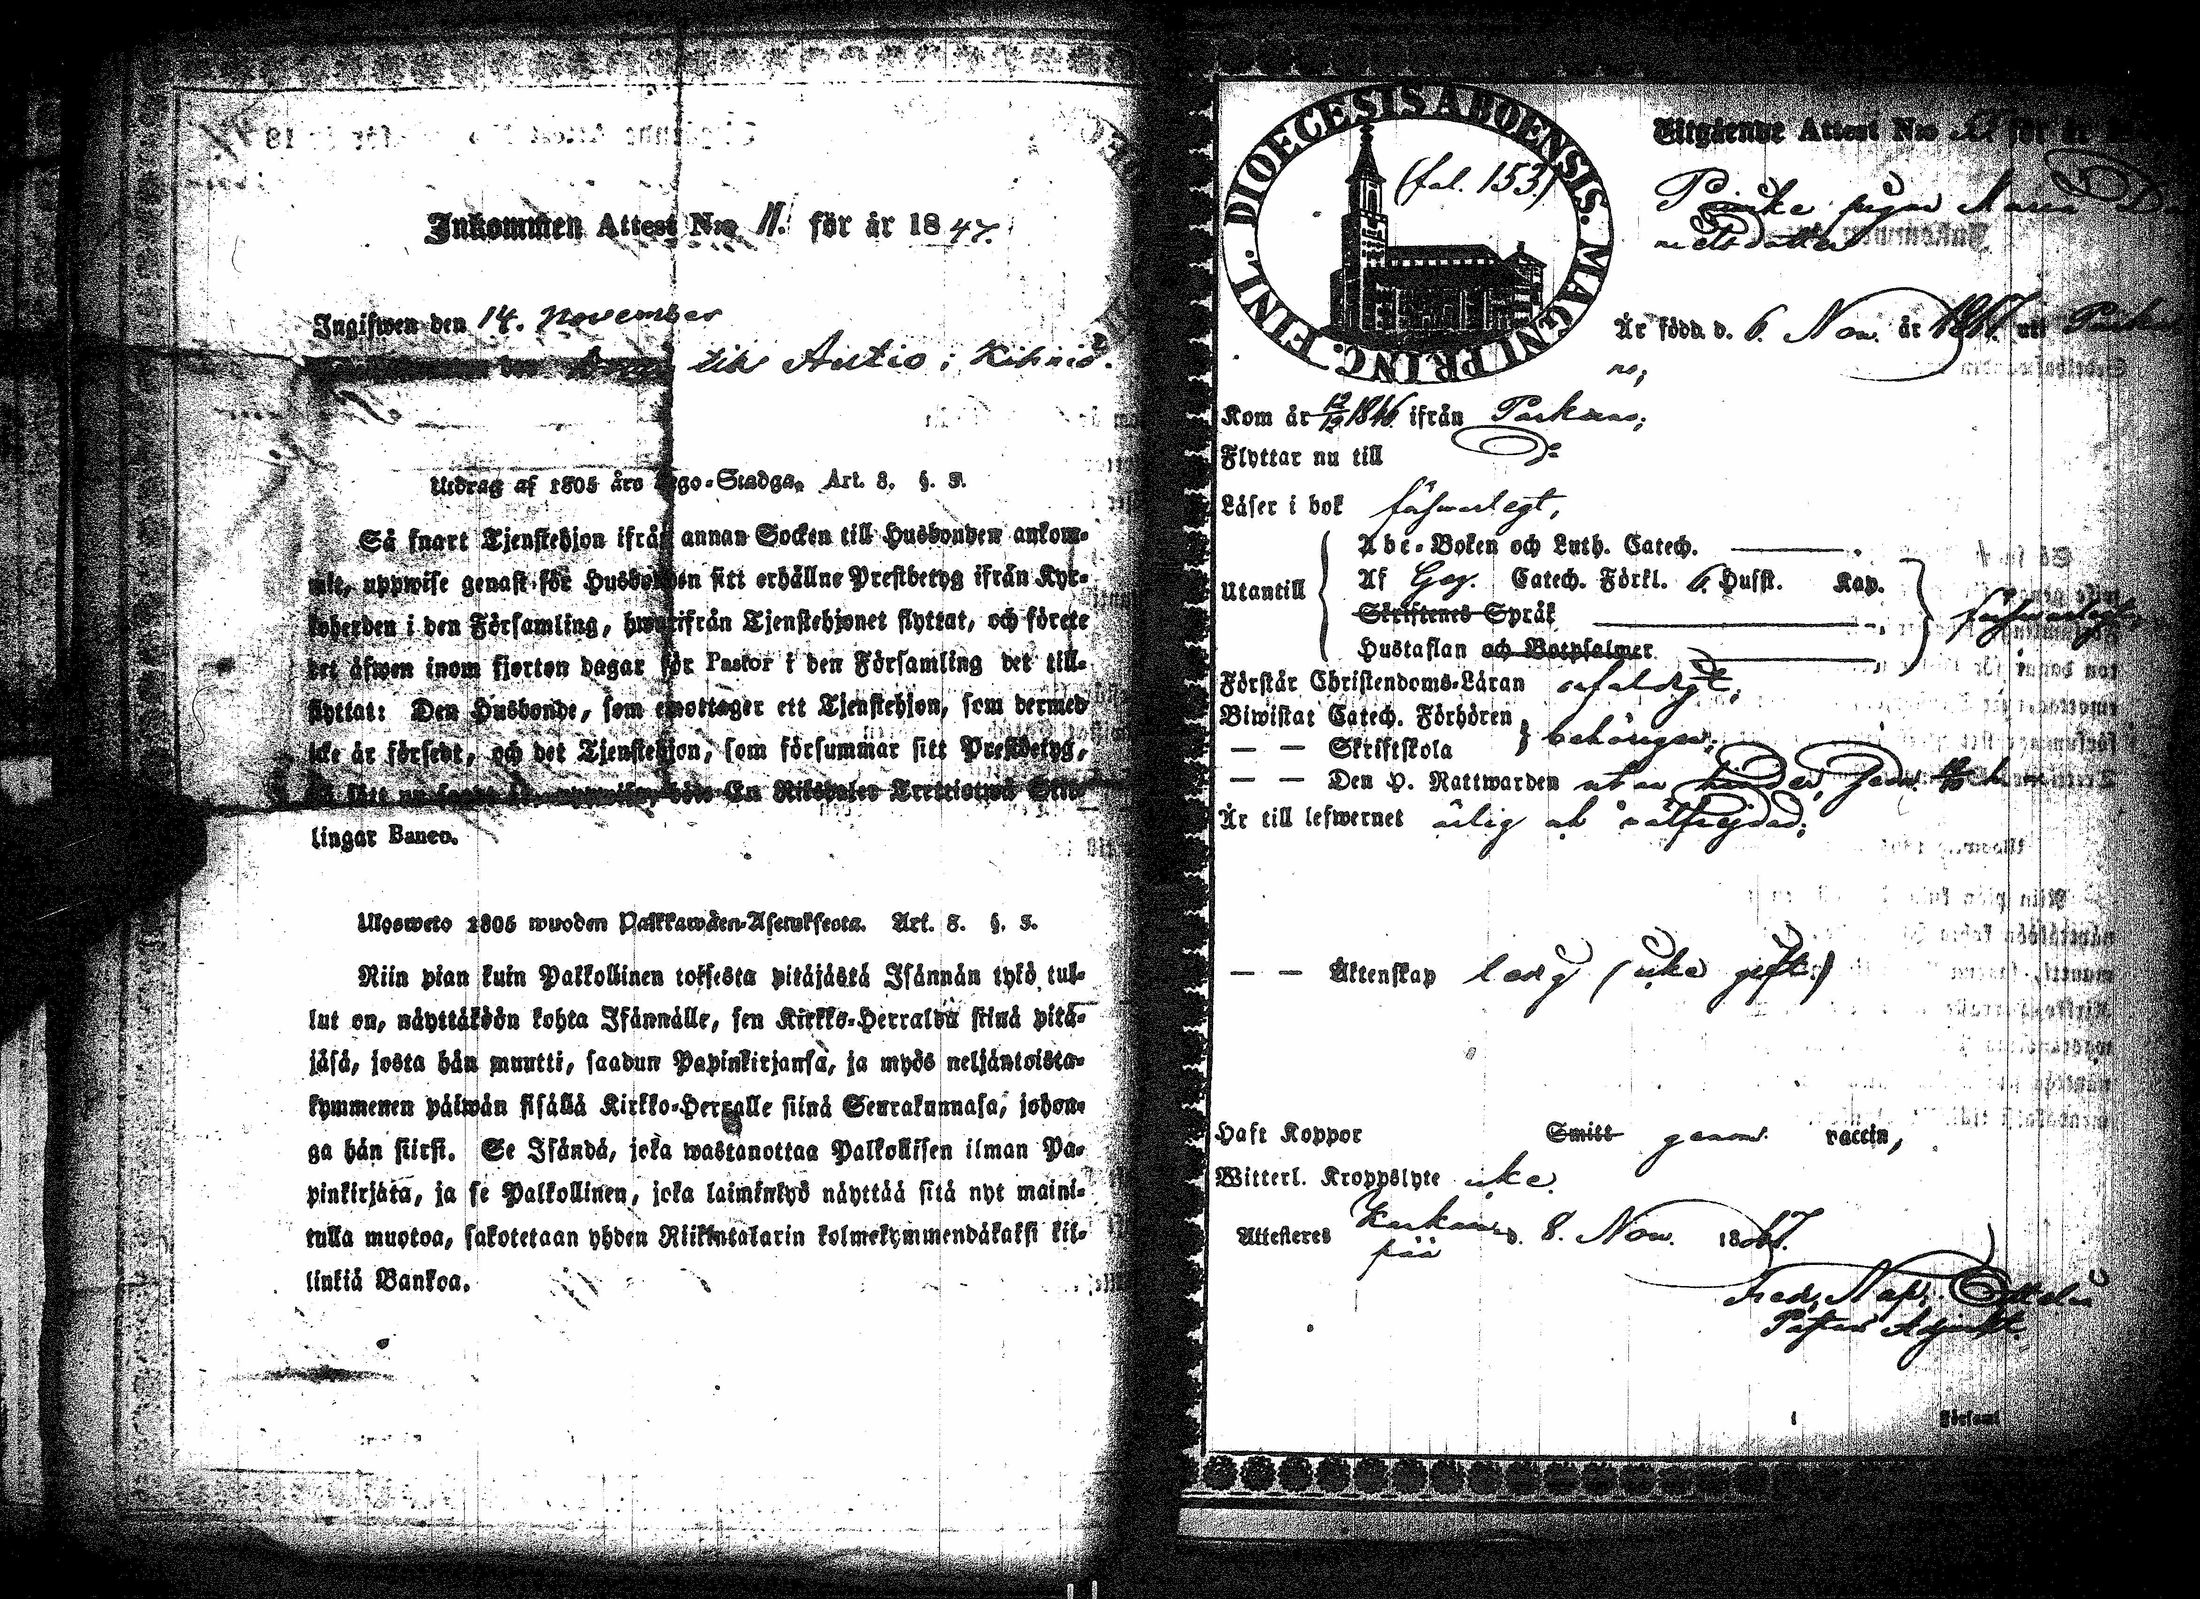 Inkommen Attest N:o 11. för år 1847.
Ingifwen den 14. November
till Autio i Kihniö.
Utdrag af 1805 års Lego-Stadga, Art. 8. §. 3.
Så snart Tjenstehjon ifrån annan Socken till Husbonden ankom-
mit, uppwise genast för Husbonden sitt erhållne Prestbetyg ifrån Kyr-
koherden i den Församling, hwarifrån Tjenstehjonet flyttat, och förete
det äfwen inom fjorton dagar för Pastor i den Församling det till-
flyttat: Den Husbonde, som emottager ett Tjenstehjon, som dermed
icke är försedt, och det Tjenstehjon, som försummar sitt Prestbetyg,
på sätt nu sagdt är, uppwisa, böte En Riksdaler Trettiotwå Skil-
lingar Banco.
Ulosweto 1805 wuoden Palkkawäen-Asetuksesta. Art. 8. §. 3.
Niin pian kuin Palkollinen toisesta pitäjästä Isännän tykö tul-
lut on, näyttäköön kohta Isännälle, sen Kirkko-Herralda siinä pitä-
jäsä, josta hän muutti, saadun Papinkirjansa, ja myös neljäntoista-
kymmenen päiwän sisällä Kirkko-Herralle siinä Seurakunnasa, johon-
ga hän siirsi. Se Isändä, joka wastanottaa Palkollisen ilman Pa-
pinkirjäta, ja se Palkollinen, joka laiminlyö näyttää sitä nyt maini-
tulla muotoa, sakotetaan yhden Riikintalarin kolmekymmendäkaksi kil-
linkiä Bankoa.
DIOECESIS ABOENSIS. MAGNI PRINC. FINL.
(fol. 153)
Utgående Attest N:o för år
Pigan Maria Da
nielsdotter
Är född d. 6. Nov. år uti Parka
no;
Kom år 1846 ifrån Parkano;
Flyttar nu till D:o
Läser i bok försvarligt,
Abc-Boken och Luth. Catech.
Utantill Af Catech. Förkl. 6. Husst. Kap.
Skriftenes Språk försvarligt,
Hustaflan och Botpsalmer
Förstår Christendoms-Läran enfaldigt;
Biwistat Catech. Förhören
— — Skriftskola behörigen;
— — Den H. Nattwarden utan hinder,
Är till lefwernet ärlig och välfrejdad;
— — Äktenskap ledig (icke gift)
Haft Koppor Smitt genom vaccin,
Witterl. Kroppslyte icke.
Attesteras Kankaan-
pää d. 8. Nov.
Fred. Nap.
Pastors Adjunkt.